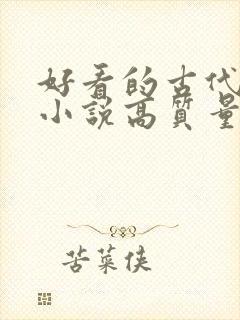 好看的古代
小说高质量
苦菜侠